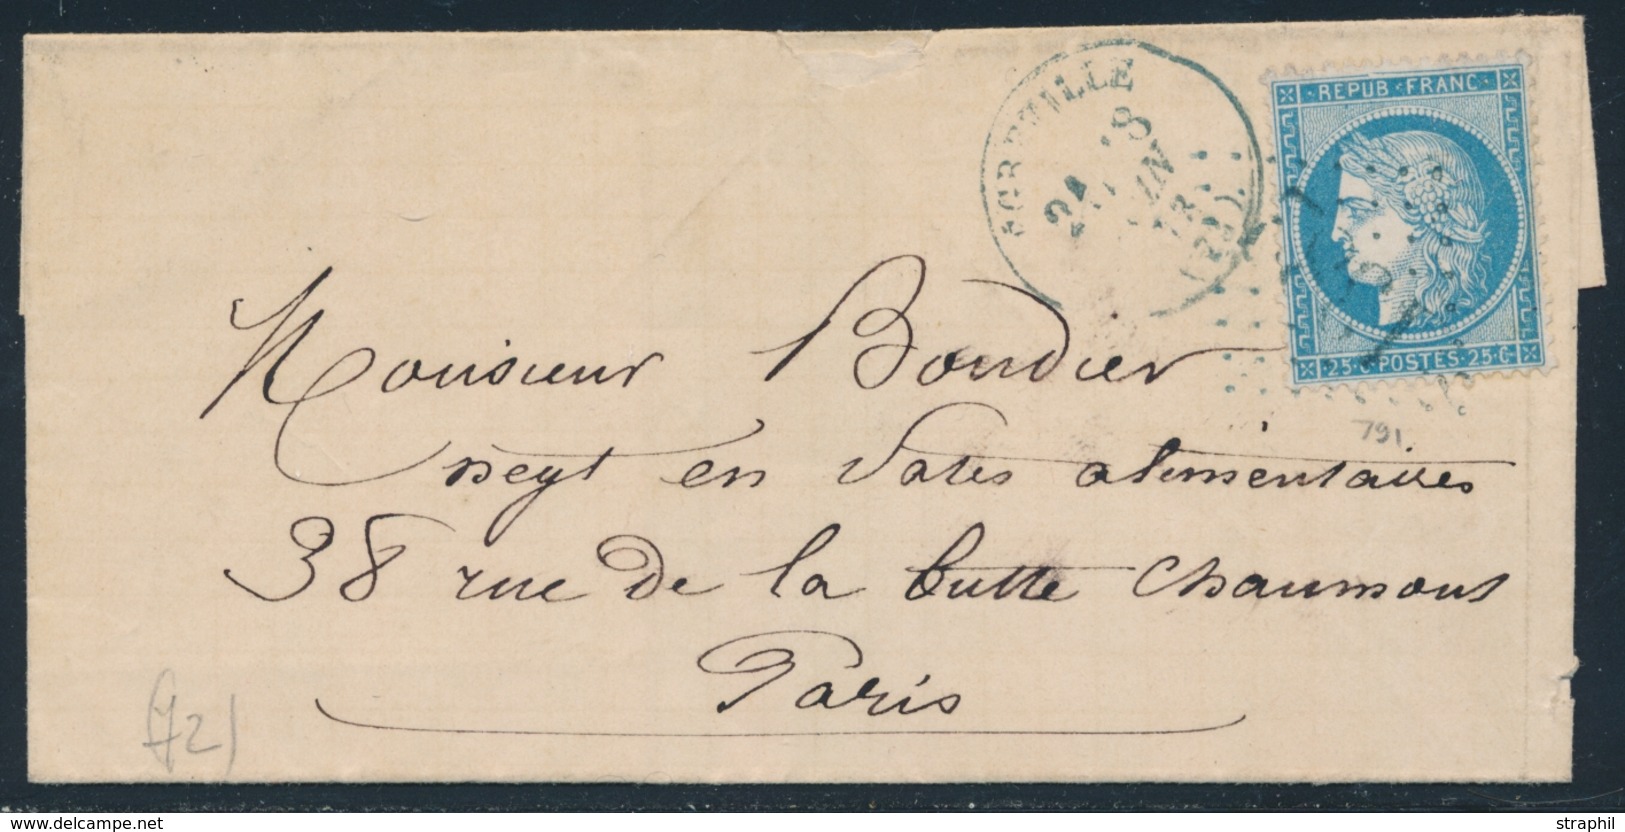 REPUB·FRANC·
25·C POSTES·25·C
791
Monsieur Boudier
Negt en Pates alimentaires
38 rue de la butte Chaumont
Paris
(72)
straphil
www.delcampe.net